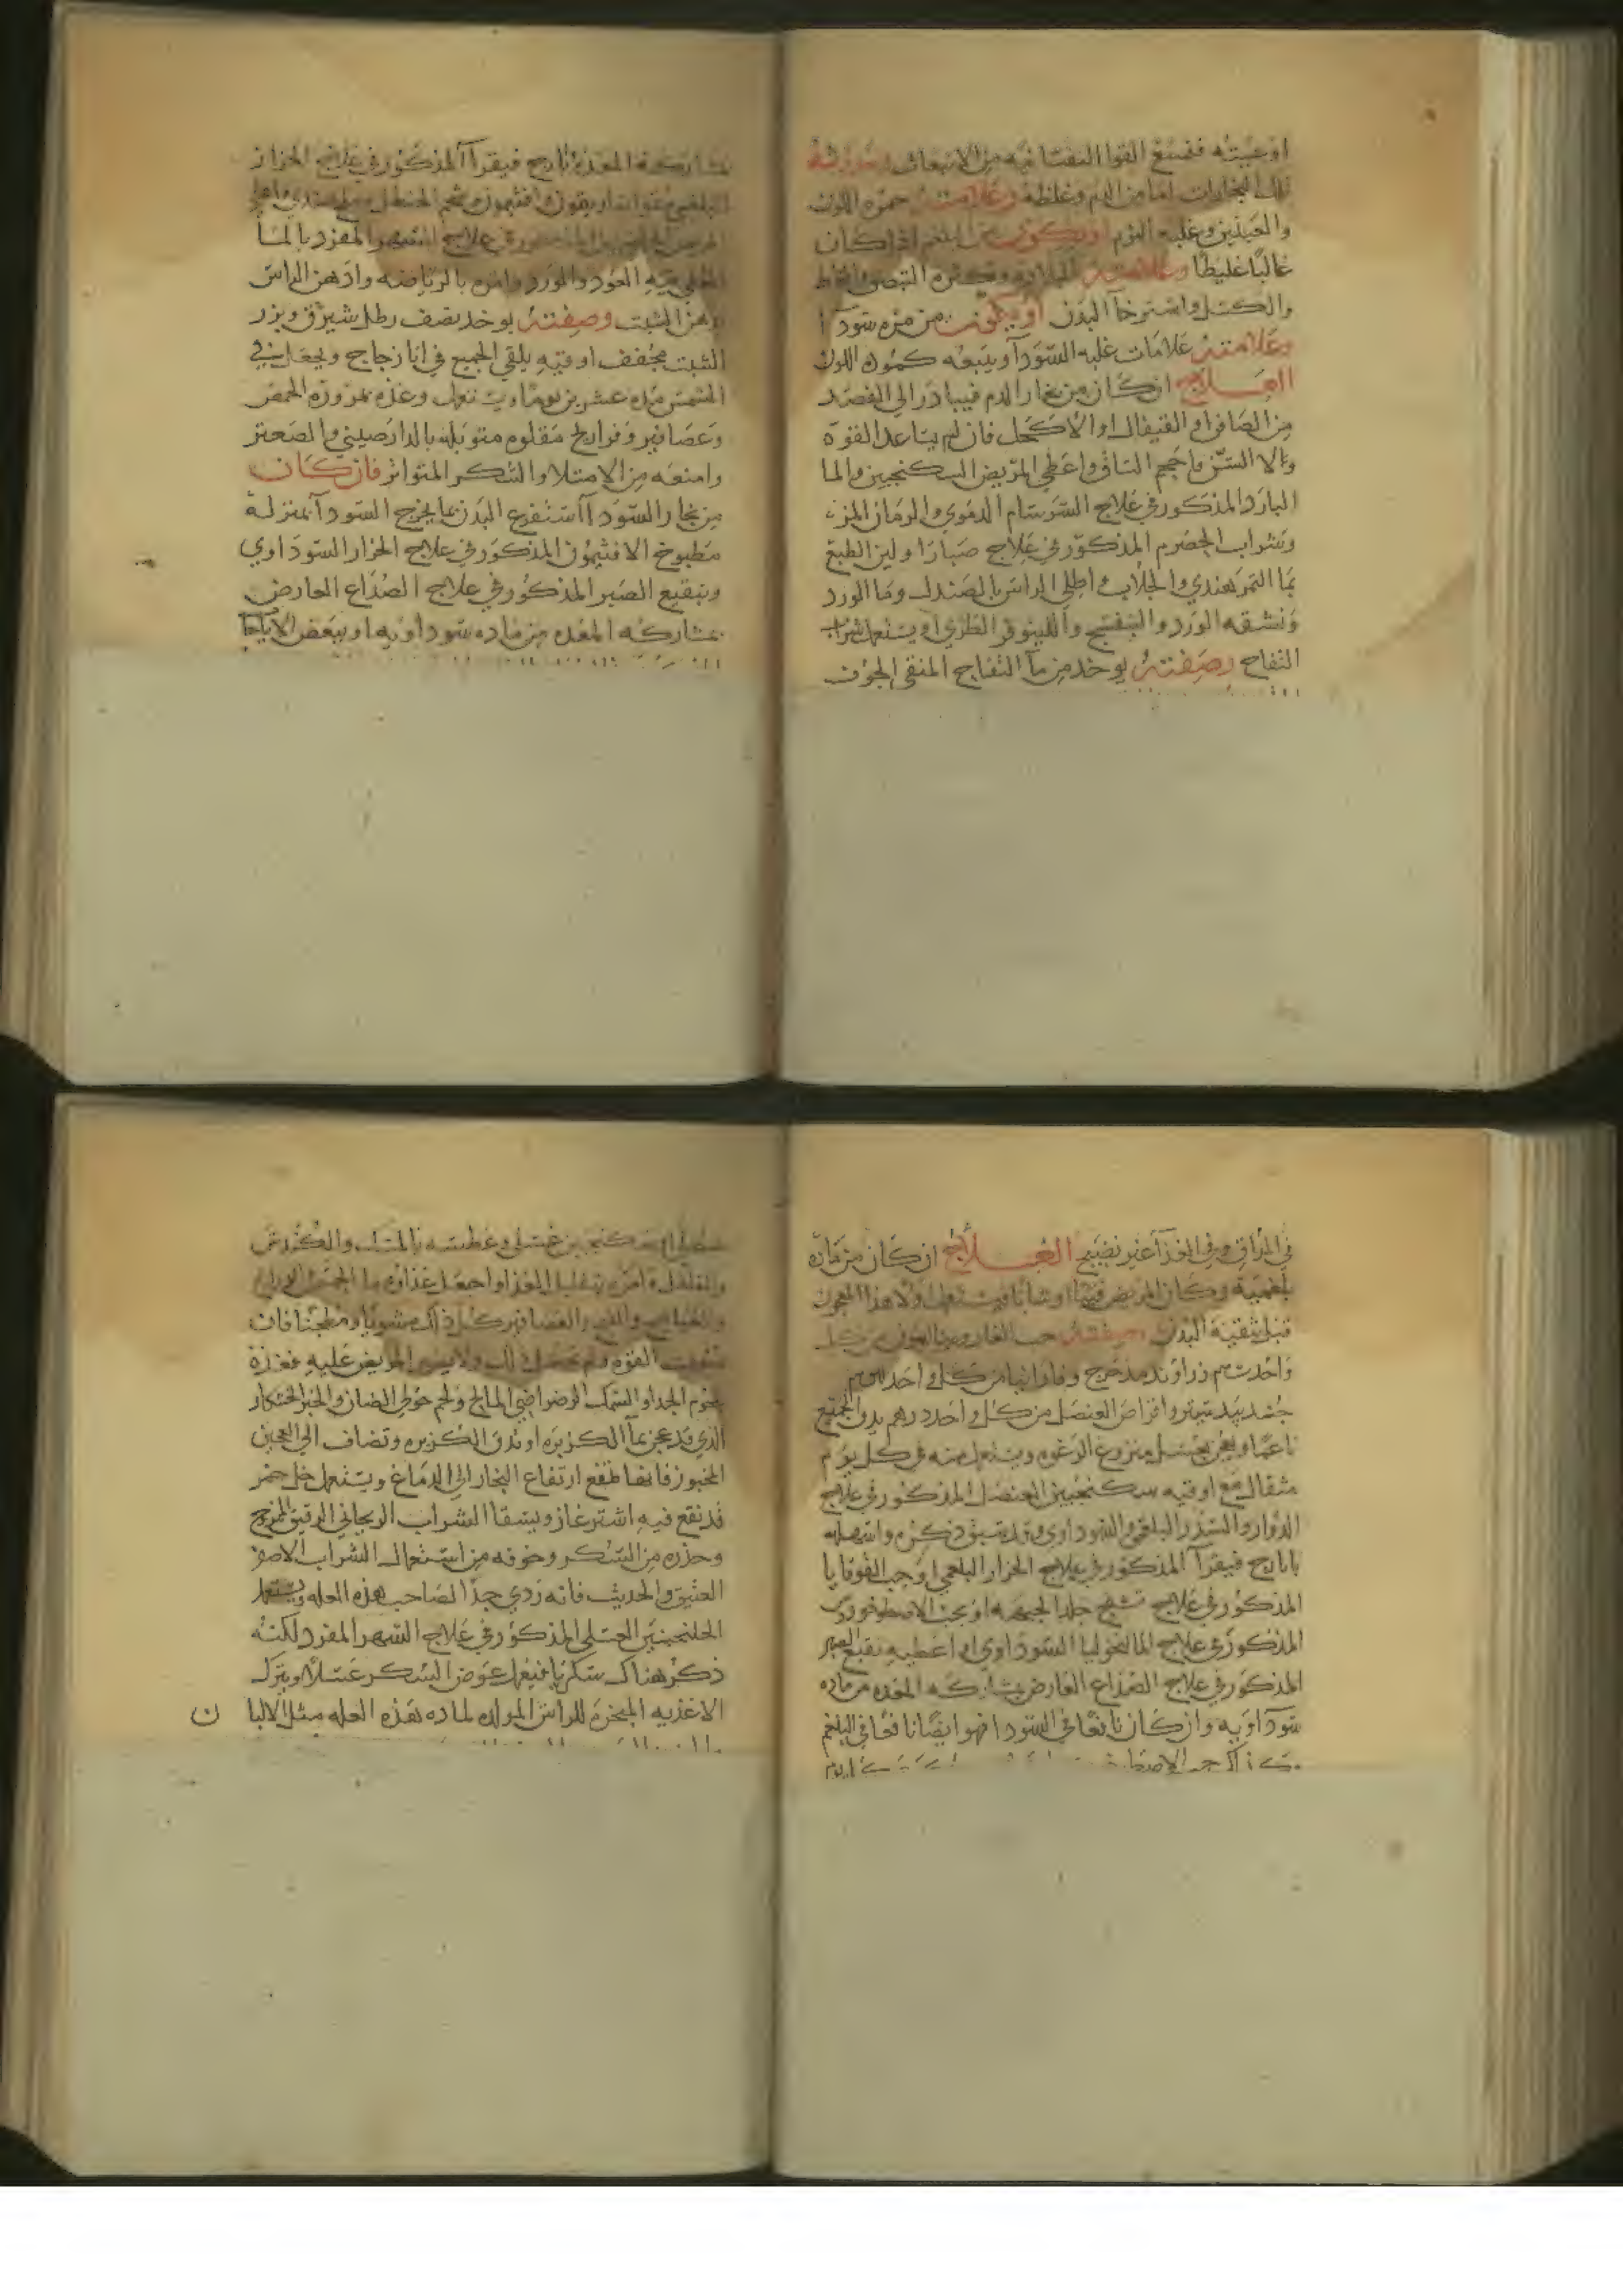 اوعيته فتمنع القوا النفسانيه من الانبعاث وحدوث
تلك البخارات اما من الدم وغلظه وعلامته حمره اللون
والعينين وغلبه النوم او يكون من البلغم اذا كان
غالبًا غليظًا وعلامته البلاده وكثره التبصق والمخاط
والكسل واسترخآ البدن او يكون من مره سودآ
وعلامته علامات غلبه السودآ ويتبعه كموده اللون
العلاج ان كان من بخار الدم فيبادر الي الفصد
من الصافن او القيفال او الاكحل فان لم يساعد القوه
والا السن فاحجم الساق واعطي المريض السكنجبين والما
البارد المذكور في علاج السرسام الدموي والرمان المز
وشراب الحصرم المذكور في علاج صبارا ولين الطبع
بما التمر هندي والجلاب واطلي الراس بالصندل وما الورد
ونشقه الورد والبنفسج واللينوفر الطري او يستعمل شراب
التفاح وصفته يوخذ من مآ التفاح المنقي الجوف
بمشاركه المعده بايارج فيقرآ المذكور في علاج الحزاز
البلغمي وافتيمون وشحم الحنظل
في علاج السهر المفرد بالمآ
المغلي فيه العود والورد وامره بالرياضه وادهن الراس
بدهن الشبت وصفته يوخذ نصف رطل شيرق وبزر
الشبت مجفف اوقيه يلقي الجميع في انا زجاج ويجعل في
الشمس مده عشرين يومًا ويستعمل وغذه بمزورة الحمص
وعصافير وفراريج مقلوه متوبله بالدارصيني والصعتر
وامنعه من الامتلا والسكر المتواتر فان كان
من بخار السودآ استفرغ البدن بما يخرج السودآ بمنزلة
مطبوخ الافتيمون المذكور في علاج الحزاز السوداوي
وبنقيع الصبر المذكور في علاج الصداع العارض
بمشاركه المعده من ماده سوداويه او ببعض الايارجات
في المراق وفي الغذآ غير نضيج العلاج ان كان من ماده
بلغميه وكان المريض فتيًا او شابًا فيستعمل اولا هذا المعجون
قبل تنقية البدن وصفته حب الغار من كل
واحد زراوند مدحرج وفاوانيا من كل واحد
جندبيدستر واقراص العنصل من كل واحد درهم يدق الجميع
ناعمًا ويعجن بعسل منزوع الرغوه ويستعمل منه في كل يوم
مثقال مع اوقيه سكنجبين العنصل المذكور في علاج
الدوار والسدر البلغمي والسوداوي وقد سبق ذكره واسهله
بايارج فيقرآ المذكور في علاج الحزاز البلغمي او حب القوقايا
المذكور في علاج تشنج جلد الجبهه او بحب الاصطوخودس
المذكور في علاج المالنخوليا السوداوي او اعطيه نقيع الصبر
المذكور في علاج الصداع العارض بمشاركه المعده من ماده
سودآويه وان كان نافعًا في السودا فهو ايضًا نافعًا في البلغم
سكنجبين عسلي وعطسه بالمسك والكندش
والفلفل وامره بتقليل الغذا واجعل غذاوه ما الحمص
والعصافير كل ذلك مشويًا او مطجنًا فان
ضعفت القوه ولم تحتمل ذلك ولا يصبر المريض عليه فغذه
بلحوم الجدا والسمك الرضراضي المالح ولحم حولي الضان والخبز الخشكار
الذي قد عجن بمآ الكزبره او تدق الكزبره وتضاف الي العجين
المخبوز فانها تمنع ارتفاع البخار الي الدماغ ويستعمل خل خمر
قد نقع فيه اشترغاز ويسقا الشراب الريحاني الرقيق الممزوج
وحذره من السكر وخوفه من استعمال الشراب الاصفر
العتيق والحديث فانه ردي جدًا لصاحب هذه العله ويستعمل
الجلنجبين العسلي المذكور في علاج السهر المفرد لكنه
ذكر هناك سكريا فيعمل عوض السكر عسلًا ويترك
الاغذيه المبخره للراس المولده لماده هذه العله مثل الالبا
ن